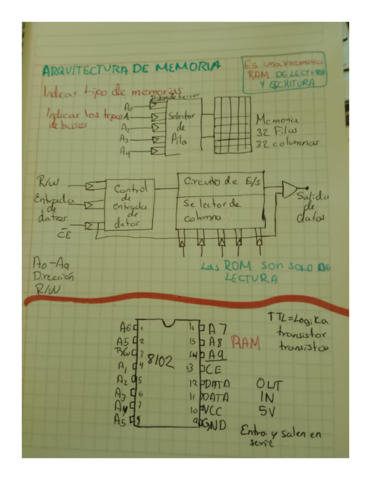 ARQUITECTURA DE MEMORIA
Es una memoria
RAM DE LECTURA
Y ESCRITURA
Indicar tipo de memorias
Indicar los tipos
de buses
A0
A1
A2
A3
A4
Selector
de
Fila
Memoria
32 Filas
32 columnas
R/W
Entrada
de
datos
CE
Control
de
entrada
de
dator
Circuito de E/S
Selector de
columna
Salida
de
datos
A0-A9
Dirección
R/W
LAS ROM SON SOLO DE
LECTURA
A6 1
A5 2
R/W 3
A1 4
A2 5
A3 6
A4 7
A5 8
8102
16 A7
15 A8
14 A9
13 CE
12 DATA OUT
11 DATA IN
10 VCC 5V
9 GND
RAM
TTL=Logika
transistor
transistor
Entra y salen en
serie